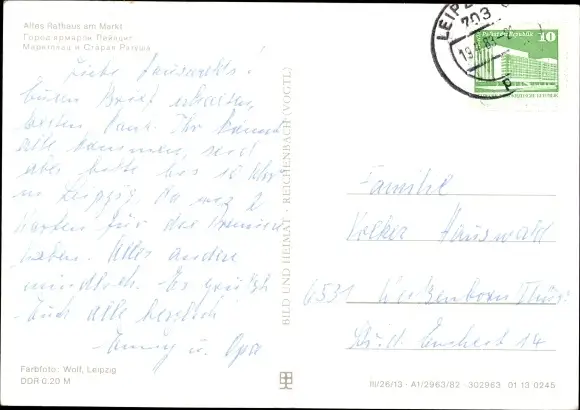 Altes Rathaus am Markt
Город ярмарок Лейпциг
Маркплац и Старая Ратуша
Liebe Hauswalds!
Euren Brief erhalten,
besten Dank. Ihr könnt
alle kommen, seid
aber bitte bis 10 Uhr
in Leipzig. Da wir 2
Karten für die Premiere
haben. Alles andere
mündlich. Es grüßt
Euch alle herzlich
u. Opa
Farbfoto: Wolf, Leipzig
DDR 0.20 M
BILD UND HEIMAT · REICHENBACH (VOGTL)
LEIPZIG
703
10
Familie
Volker Hauswald
6531 Weißenborn Thür.
14
III/26/13 · A1/2963/82 · 302963 01 13 0245